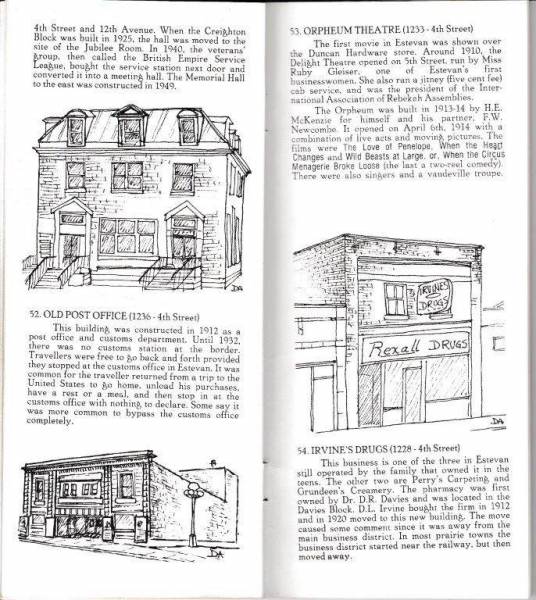 4th Street and 12th Avenue. When the Creighton
Block was built in 1925, the hall was moved to the
site of the Jubilee Room. In 1940, the veterans'
group, then called the British Empire Service
League, bought the service station next door and
converted it into a meeting hall. The Memorial Hall
to the east was constructed in 1949.
DA
52. OLD POST OFFICE (1236 - 4th Street)
This building was constructed in 1912 as a
post office and customs department. Until 1932,
there was no customs station at the border.
Travellers were free to go back and forth provided
they stopped at the customs office in Estevan. It was
common for the traveller returned from a trip to the
United States to go home, unload his purchases,
have a rest or a meal, and then stop in at the
customs office with nothing to declare. Some say it
was more common to bypass the customs office
completely.
DA
53. ORPHEUM THEATRE (1233 - 4th Street)
The first movie in Estevan was shown over
the Duncan Hardware store. Around 1910, the
Delight Theatre opened on 5th Street, run by Miss
Ruby Gleiser, one of Estevan's first
businesswomen. She also ran a jitney (five cent fee)
cab service, and was the president of the Inter-
national Association of Rebekah Assemblies.
The Orpheum was built in 1913-14 by H.E.
McKenzie for himself and his partner, F.W.
Newcombe. It opened on April 6th, 1914 with a
combination of live acts and moving pictures. The
films were The Love of Penelope, When the Heart
Changes and Wild Beasts at Large, or, When the Circus
Menagerie Broke Loose (the last a two-reel comedy).
There were also singers and a vaudeville troupe.
IRVINE'S
DRUGS
Rexall DRUGS
DA
54. IRVINE'S DRUGS (1228 - 4th Street)
This business is one of the three in Estevan
still operated by the family that owned it in the
teens. The other two are Perry's Carpeting, and
Grundeen's Creamery. The pharmacy was first
owned by Dr. D.R. Davies and was located in the
Davies Block. D.L. Irvine bought the firm in 1912
and in 1920 moved to this new building. The move
caused some comment since it was away from the
main business district. In most prairie towns the
business district started near the railway, but then
moved away.